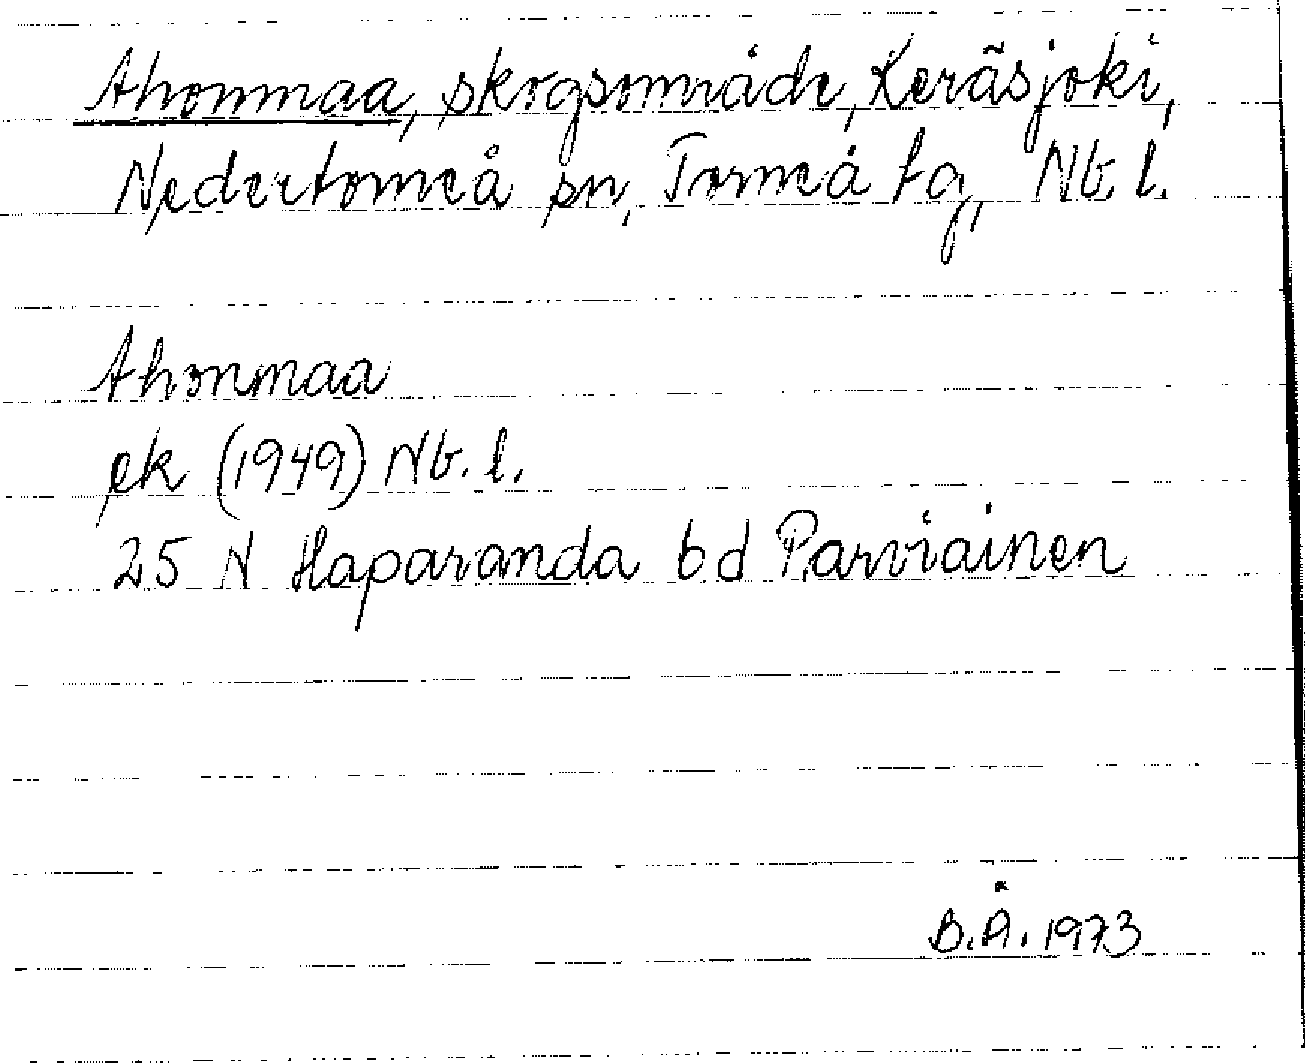 Ahonmaa, skogsområde, Keräsjoki,
Nedertorneå sn, Torneå tg, Nb. l.
Ahonmaa
ek (1949) Nb. l.
25 N Haparanda bd Parviainen
B.Å. 1973